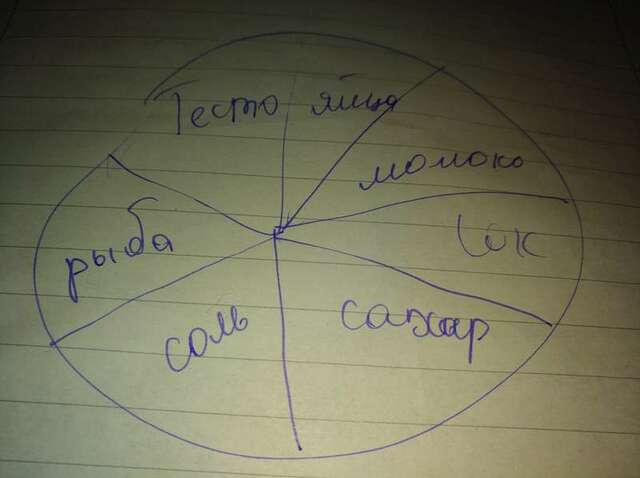 Тесто
яйцо
молоко
сок
сахар
соль
рыба